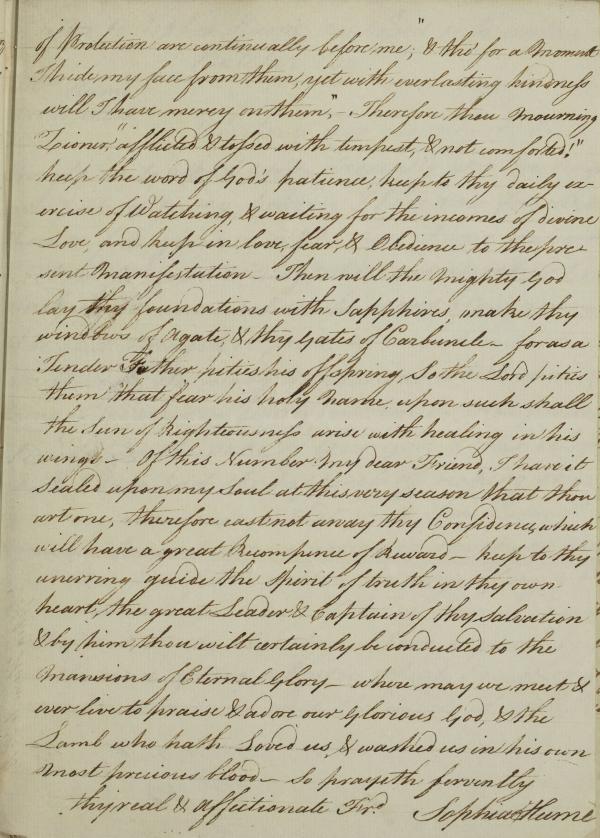 of Protection are continually before me; "& tho' for a Moment
I hide, my face from them, yet with everlasting kindness
will I have mercy on them," - Therefore thou Mourning
Zioner, "afflicted & tossed with tempest, & not comforted!"
keep the word of God's patience, keep to thy daily ex-
ercise of Watching, & waiting for the incomes of divine
Love, and keep in love, fear, & Obedience to the pre-
sent Manifestation - Then will the Mighty God
lay thy foundations with Sapphires, make thy
windows of Agate, & thy Gates of Carbuncle - for as a
Tender Father pities his offspring, So the Lord pities
them that fear his holy Name, upon such shall
the Sun of Righteousness arise with healing in his
wings - Of this Number my dear Friend, I have it
Sealed upon my Soul at this very season that thou
art one, therefore cast not away thy Confidence, which
will have a great Recompence of Reward - keep to thy
unerring guide the Spirit of truth in thy own
heart, the great Leader & Captain of thy Salvation
& by him thou wilt certainly be conducted to the
Mansions of Eternal Glory - where may we meet &
ever live to praise & adore our Glorious God, & the
Lamb who hath Loved us, & washed us in his own
most precious blood - So prayeth fervently
thy real & affectionate Frd. Sophia Hume